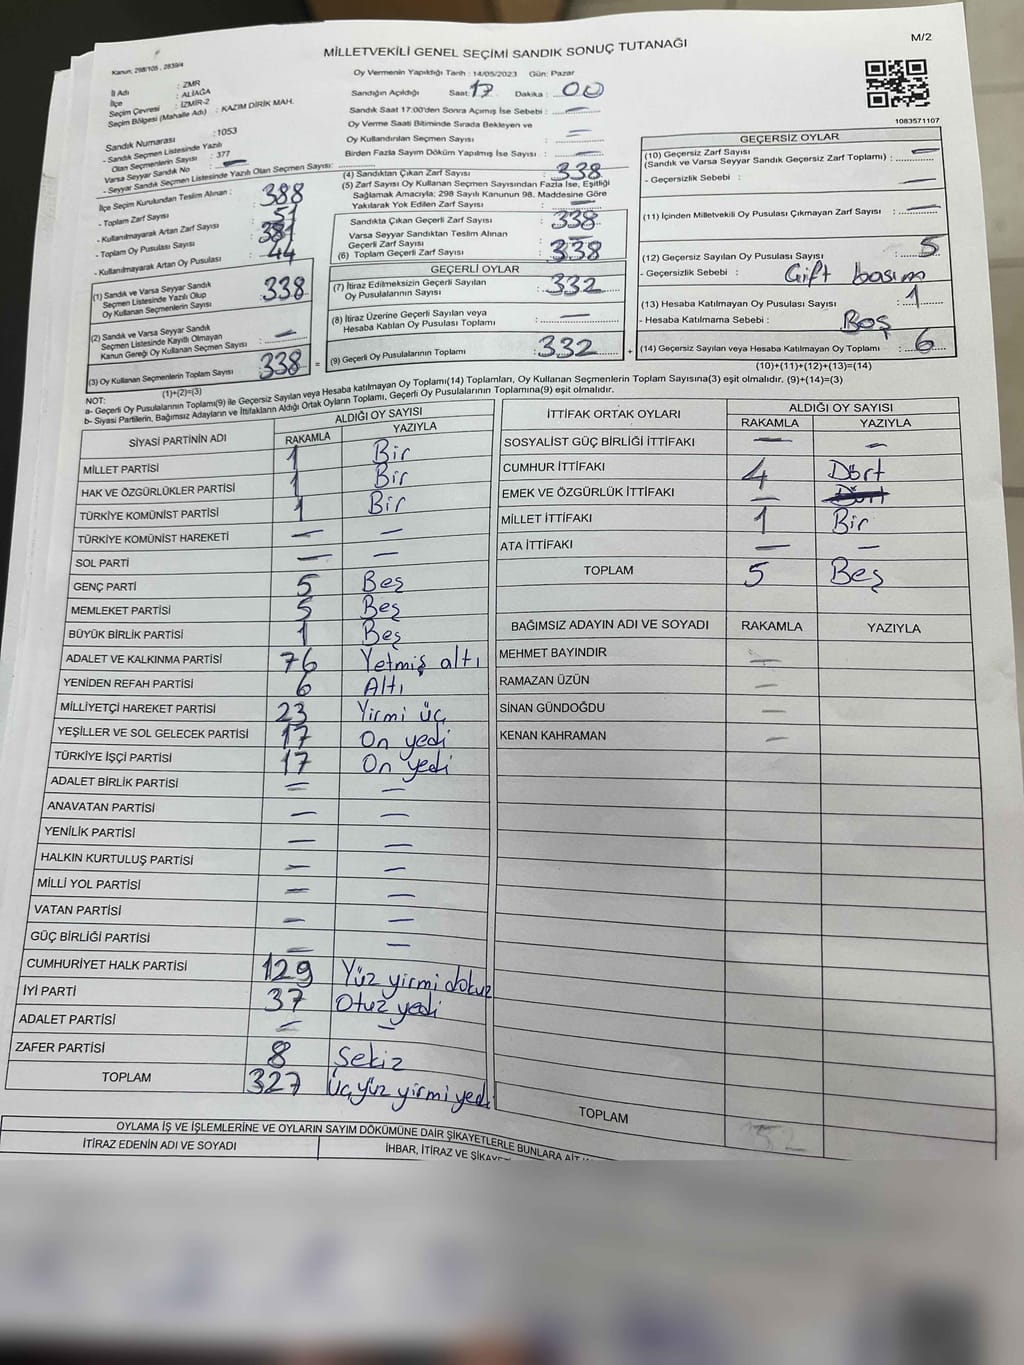 M/2
MİLLETVEKİLİ GENEL SEÇİMİ SANDIK SONUÇ TUTANAĞI
Kanun: 298/105 , 2839/4
Oy Vermenin Yapıldığı Tarih : 14/05/2023 Gün: Pazar
İl Adı : ZMR
İlçe : ALİAĞA
Seçim Çevresi : İZMİR-2
Seçim Bölgesi (Mahalle Adı) : KAZIM DİRİK MAH.
Sandığın Açıldığı Saat: 17 Dakika : 00
Sandık Saat 17:00'den Sonra Açımış İse Sebebi : —
Oy Verme Saati Bitiminde Sırada Bekleyen ve
Oy Kullandırılan Seçmen Sayısı : —
Birden Fazla Sayım Döküm Yapılmış İse Sayısı : —
1083571107
Sandık Numarası : 1053
- Sandık Seçmen Listesinde Yazılı
Olan Seçmenlerin Sayısı : 377
Varsa Seyyar Sandık No : —
- Seyyar Sandık Seçmen Listesinde Yazılı Olan Seçmen Sayısı:
İlçe Seçim Kurulundan Teslim Alınan :
- Toplam Zarf Sayısı : 388
- Kullanılmayarak Artan Zarf Sayısı : 51
- Toplam Oy Pusulası Sayısı : 381
- Kullanılmayarak Artan Oy Pusulası : 44
(1) Sandık ve Varsa Seyyar Sandık
Seçmen Listesinde Yazılı Olup
Oy Kullanan Seçmenlerin Sayısı : 338
(2) Sandık ve Varsa Seyyar Sandık
Seçmen Listesinde Kayıtlı Olmayan
Kanun Gereği Oy Kullanan Seçmen Sayısı : —
(3) Oy Kullanan Seçmenlerin Toplam Sayısı : 338
(1)+(2)=(3)
(4) Sandıktan Çıkan Zarf Sayısı : 338
(5) Zarf Sayısı Oy Kullanan Seçmen Sayısından Fazla İse, Eşitliği
Sağlamak Amacıyla; 298 Sayılı Kanunun 98. Maddesine Göre
Yakılarak Yok Edilen Zarf Sayısı : —
Sandıkta Çıkan Geçerli Zarf Sayısı : 338
Varsa Seyyar Sandıktan Teslim Alınan
Geçerli Zarf Sayısı : —
(6) Toplam Geçerli Zarf Sayısı : 338
GEÇERLİ OYLAR
(7) İtiraz Edilmeksizin Geçerli Sayılan
Oy Pusulalarının Sayısı : 332
(8) İtiraz Üzerine Geçerli Sayılan veya
Hesaba Katılan Oy Pusulası Toplamı : —
= (9) Geçerli Oy Pusulalarının Toplamı : 332 +
GEÇERSİZ OYLAR
(10) Geçersiz Zarf Sayısı
(Sandık ve Varsa Seyyar Sandık Geçersiz Zarf Toplamı) : —
- Geçersizlik Sebebi : —
(11) İçinden Milletvekili Oy Pusulası Çıkmayan Zarf Sayısı : —
(12) Geçersiz Sayılan Oy Pusulası Sayısı : 5
- Geçersizlik Sebebi : Çift basım
(13) Hesaba Katılmayan Oy Pusulası Sayısı : 1
- Hesaba Katılmama Sebebi : Boş
(14) Geçersiz Sayılan veya Hesaba Katılmayan Oy Toplamı : 6
(10)+(11)+(12)+(13)=(14)
NOT:
a- Geçerli Oy Pusulalarının Toplamı(9) ile Geçersiz Sayılan veya Hesaba katılmayan Oy Toplamı(14) Toplamları, Oy Kullanan Seçmenlerin Toplam Sayısına(3) eşit olmalıdır. (9)+(14)=(3)
b- Siyasi Partilerin, Bağımsız Adayların ve İttifakların Aldığı Ortak Oyların Toplamı, Geçerli Oy Pusulalarının Toplamına(9) eşit olmalıdır.
SİYASİ PARTİNİN ADI ALDIĞI OY SAYISI
RAKAMLA YAZIYLA
MİLLET PARTİSİ 1 Bir
HAK VE ÖZGÜRLÜKLER PARTİSİ 1 Bir
TÜRKİYE KOMÜNİST PARTİSİ 1 Bir
TÜRKİYE KOMÜNİST HAREKETİ — —
SOL PARTİ — —
GENÇ PARTİ 5 Beş
MEMLEKET PARTİSİ 5 Beş
BÜYÜK BİRLİK PARTİSİ 1 Beş
ADALET VE KALKINMA PARTİSİ 76 Yetmiş altı
YENİDEN REFAH PARTİSİ 6 Altı
MİLLİYETÇİ HAREKET PARTİSİ 23 Yirmi üç
YEŞİLLER VE SOL GELECEK PARTİSİ 17 On yedi
TÜRKİYE İŞÇİ PARTİSİ 17 On yedi
ADALET BİRLİK PARTİSİ — —
ANAVATAN PARTİSİ — —
YENİLİK PARTİSİ — —
HALKIN KURTULUŞ PARTİSİ — —
MİLLİ YOL PARTİSİ — —
VATAN PARTİSİ — —
GÜÇ BİRLİĞİ PARTİSİ — —
CUMHURİYET HALK PARTİSİ 129 Yüz yirmi dokuz
İYİ PARTİ 37 Otuz yedi
ADALET PARTİSİ — —
ZAFER PARTİSİ 8 Sekiz
TOPLAM 327 Üçyüz yirmi yedi
İTTİFAK ORTAK OYLARI ALDIĞI OY SAYISI
RAKAMLA YAZIYLA
SOSYALİST GÜÇ BİRLİĞİ İTTİFAKI — —
CUMHUR İTTİFAKI 4 Dört
EMEK VE ÖZGÜRLÜK İTTİFAKI —
MİLLET İTTİFAKI 1 Bir
ATA İTTİFAKI — —
TOPLAM 5 Beş
BAĞIMSIZ ADAYIN ADI VE SOYADI RAKAMLA YAZIYLA
MEHMET BAYINDIR —
RAMAZAN ÜZÜN —
SİNAN GÜNDOĞDU —
KENAN KAHRAMAN —
TOPLAM
OYLAMA İŞ VE İŞLEMLERİNE VE OYLARIN SAYIM DÖKÜMÜNE DAİR ŞİKAYETLERLE BUNLARA AİT
İTİRAZ EDENİN ADI VE SOYADI
İHBAR, İTİRAZ VE